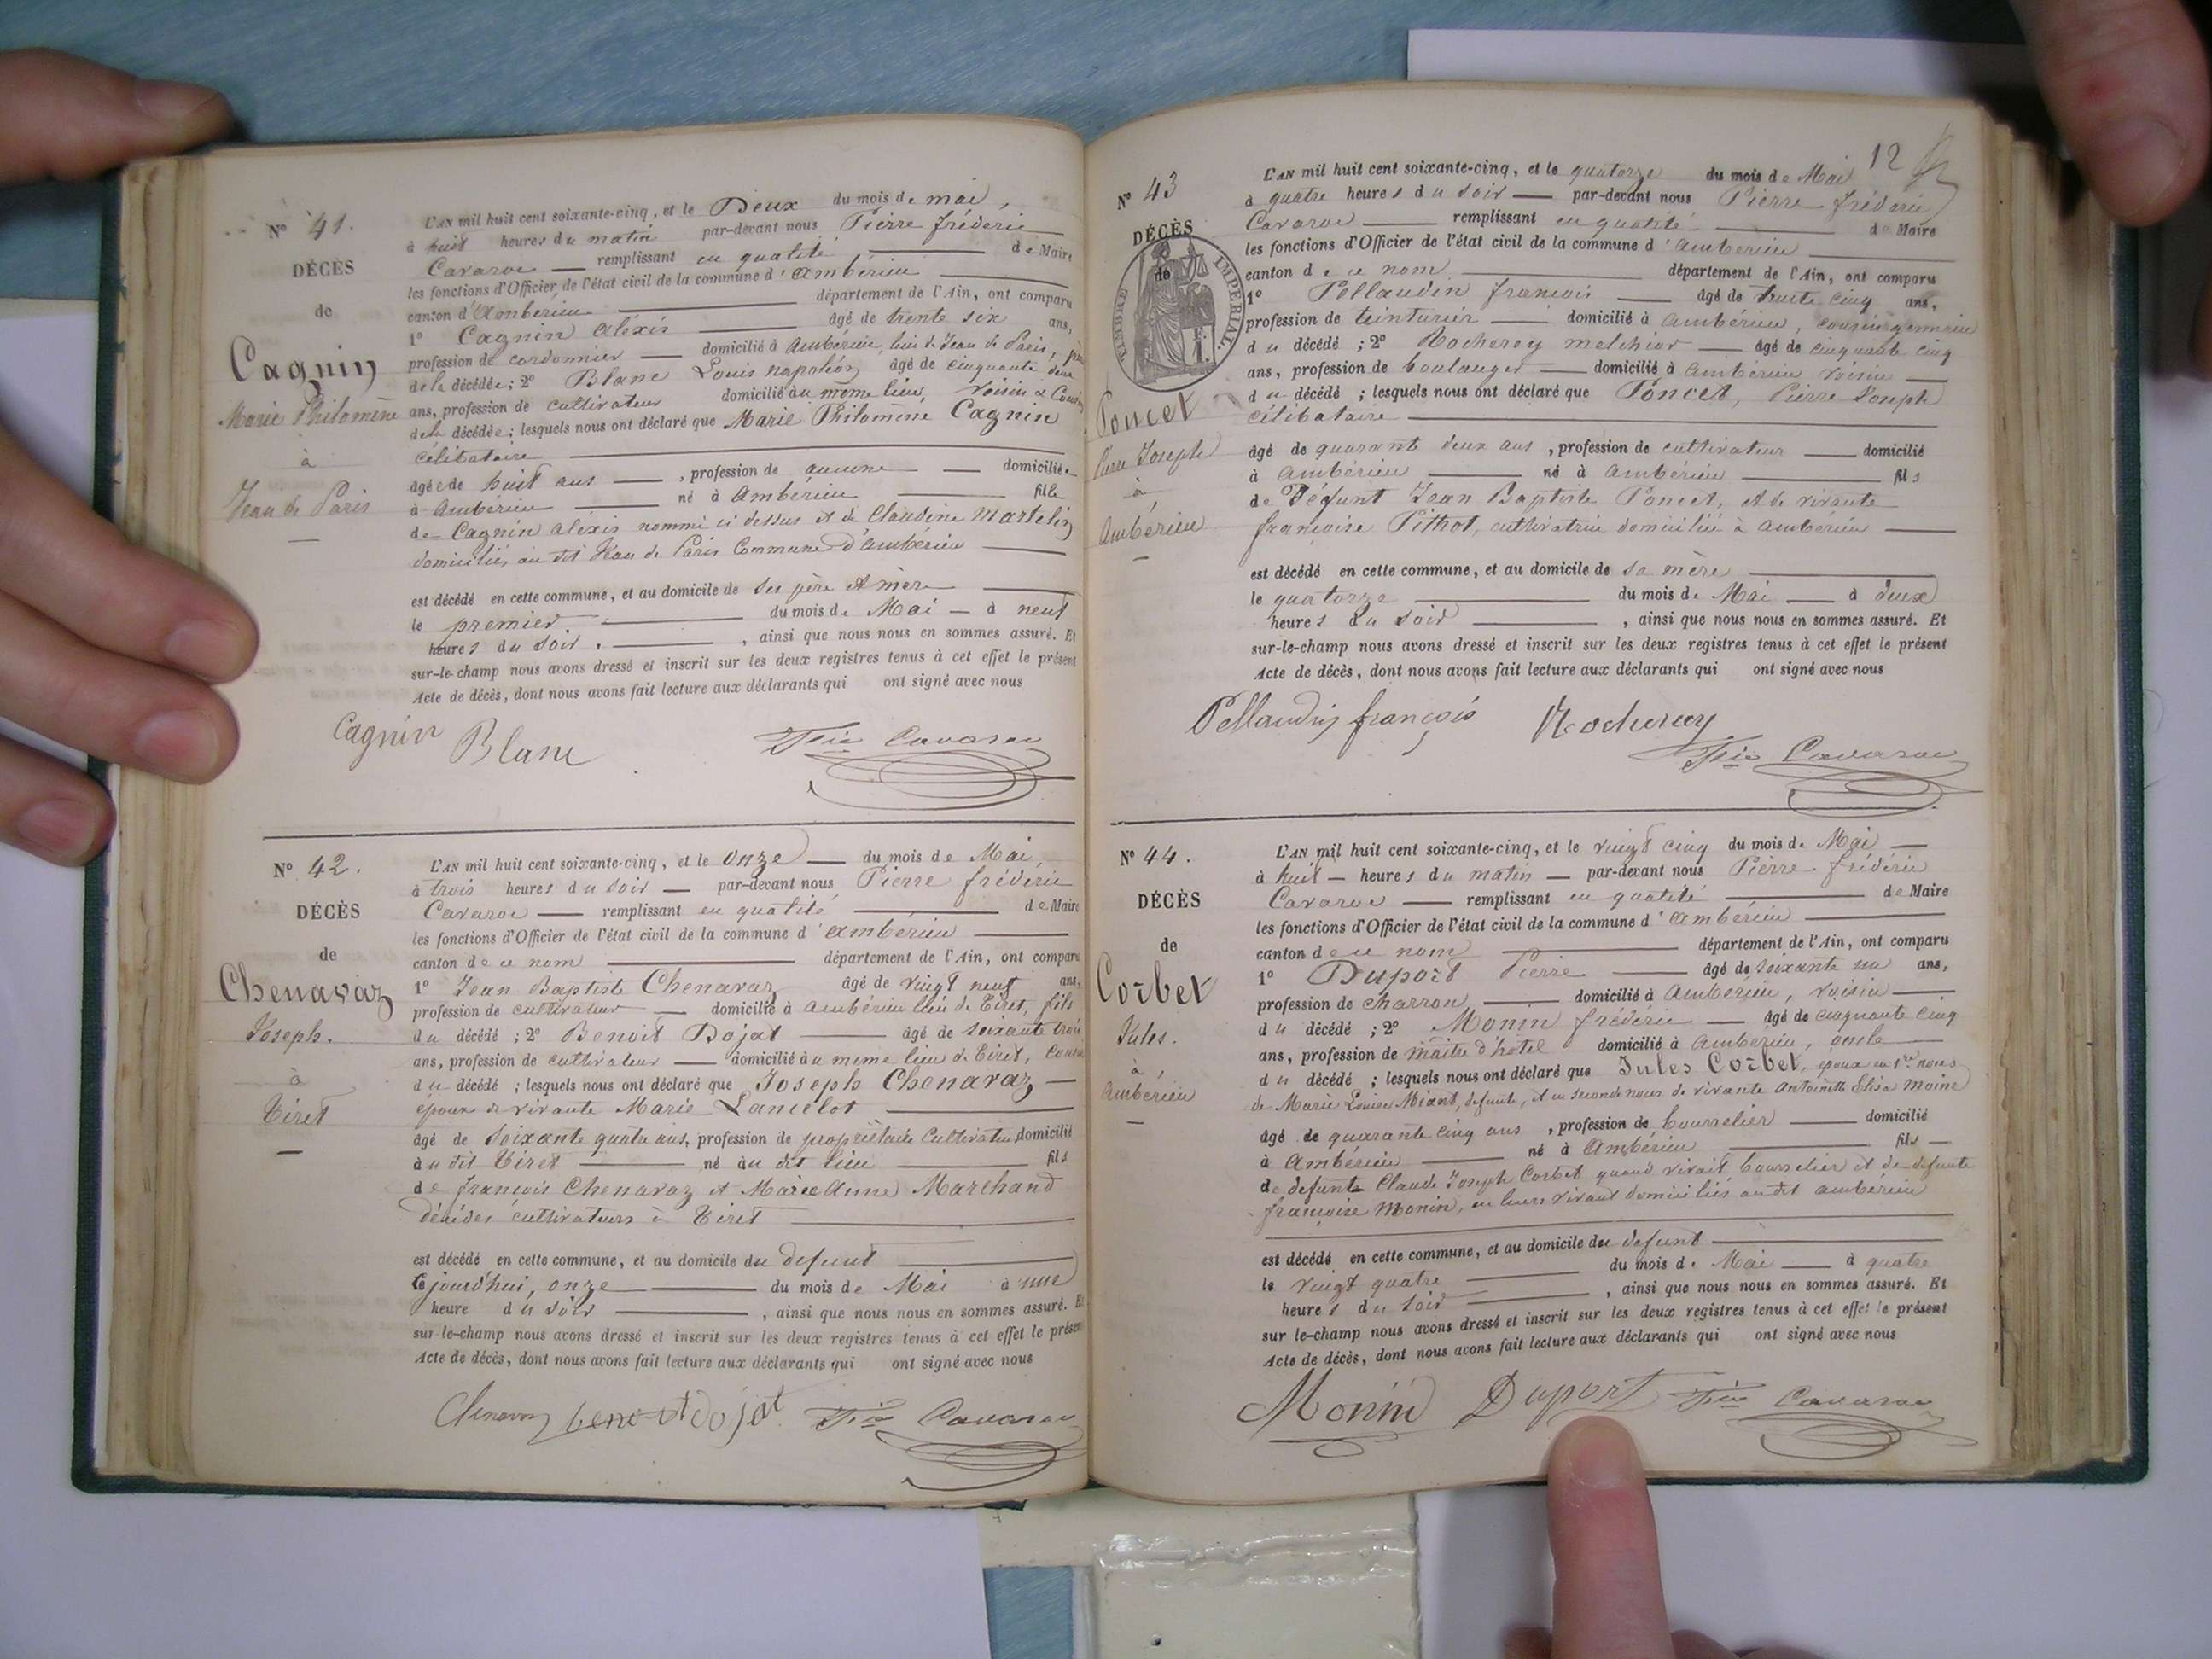 N° 41.
DÉCÈS
de
Cagnin
Marie Philomène
à
Jean de Paris
L'AN mil huit cent soixante-cinq, et le Deux du mois de mai,
à huit heures du matin par-devant nous Pierre fréderic
Cavaroc remplissant en qualité de Maire
les fonctions d'Officier de l'état civil de la commune d'Ambérieu
canton d'Ambérieu département de l'Ain, ont comparu
1° Cagnin Alexis âgé de trente six ans,
profession de cordonnier domicilié à Ambérieu, lieu de Jean de Paris, père
de la décédée; 2° Blanc Louis napoléon âgé de cinquante deux
ans, profession de cultivateur domicilié au même lieu, voisin & Cousin
de la décédée; lesquels nous ont déclaré que Marie Philomène Cagnin
célibataire
âgée de huit ans, profession de aucune domiciliée
à Ambérieu né à Ambérieu fille
de Cagnin Alexis nommé ci dessus et de Claudine Martelin
domiciliés au dit Jean de Paris Commune d'Ambérieu
est décédé en cette commune, et au domicile de ses père et mère
le premier du mois de Mai à neuf
heures du soir, ainsi que nous nous en sommes assuré. Et
sur-le-champ nous avons dressé et inscrit sur les deux registres tenus à cet effet le présent
Acte de décès, dont nous avons fait lecture aux déclarants qui ont signé avec nous
Cagnin Blanc Fric Cavaroc
N° 42.
DÉCÈS
de
Chenavaz
Joseph.
à
Tiret
L'AN mil huit cent soixante-cinq, et le onze du mois de Mai,
à trois heures du soir par-devant nous Pierre fréderic
Cavaroc remplissant en qualité de Maire
les fonctions d'Officier de l'état civil de la commune d'Ambérieu
canton de ce nom département de l'Ain, ont comparu
1° Jean Baptiste Chenavaz âgé de vingt neuf ans,
profession de cultivateur domicilié à Ambérieu lieu de Tiret, fils
du décédé; 2° Benoit Dojat âgé de soixante trois
ans, profession de cultivateur domicilié au même lieu de Tiret, cousin
du décédé; lesquels nous ont déclaré que Joseph Chenavaz
époux de vivante Marie Lancelot
âgé de soixante quatre ans, profession de propriétaire Cultivateur domicilié
au dit Tiret né au dit lieu fils
de françois Chenavaz et Marie Anne Marchand
décédés cultivateurs à Tiret
est décédé en cette commune, et au domicile du defunt
Ce jourd'hui, onze du mois de Mai à une
heure du soir, ainsi que nous nous en sommes assuré. Et
sur-le-champ nous avons dressé et inscrit sur les deux registres tenus à cet effet le présent
Acte de décès, dont nous avons fait lecture aux déclarants qui ont signé avec nous
Chenavaz benoit dojat Fric Cavaroc
12
N° 43
DÉCÈS
de
TIMBRE IMPÉRIAL.
Poncet
Pierre Joseph
à
Ambérieu
L'AN mil huit cent soixante-cinq, et le quatorze du mois de Mai
à quatre heures du soir par-devant nous Pierre fréderic
Cavaroc remplissant en qualité de Maire
les fonctions d'Officier de l'état civil de la commune d'Ambérieu
canton de ce nom département de l'Ain, ont comparu
1° Pellaudin françois âgé de trente cinq ans,
profession de teinturier domicilié à Ambérieu, cousin germain
du décédé; 2° Rocherey melchior âgé de cinquante cinq
ans, profession de boulanger domicilié à Ambérieu voisin
du décédé; lesquels nous ont déclaré que Poncet, Pierre Joseph
célibataire
âgé de quarante deux ans, profession de cultivateur domicilié
à Ambérieu né à Ambérieu fils
de Défunt Jean Baptiste Poncet, et de vivante
françoise Pithot, cultivatrice domiciliée à Ambérieu
est décédé en cette commune, et au domicile de sa mère
le quatorze du mois de Mai à deux
heures du soir, ainsi que nous nous en sommes assuré. Et
sur-le-champ nous avons dressé et inscrit sur les deux registres tenus à cet effet le présent
Acte de décès, dont nous avons fait lecture aux déclarants qui ont signé avec nous
Pellaudin françois Rocherey
Fric Cavaroc
N° 44.
DÉCÈS
de
Corbet
Jules.
à
Ambérieu
L'AN mil huit cent soixante-cinq, et le vingt cinq du mois de Mai
à huit heures du matin par-devant nous Pierre fréderic
Cavaroc remplissant en qualité de Maire
les fonctions d'Officier de l'état civil de la commune d'Ambérieu
canton de ce nom département de l'Ain, ont comparu
1° Duport Pierre âgé de soixante un ans,
profession de charron domicilié à Ambérieu, voisin
du décédé; 2° Monin fréderic âgé de cinquante cinq
ans, profession de maître d'hotel domicilié à Ambérieu, oncle
du décédé; lesquels nous ont déclaré que Jules Corbet, époux en 1res noces
de Marie Louise Miant, defunte, et en seconde noces de vivante Antoinette Elisa Moine
âgé de quarante cinq ans, profession de bourrelier domicilié
à Ambérieu né à Ambérieu fils
de defunts Claude Joseph Corbet quand vivait bourrelier et de defunte
françoise Monin, en leurs vivant domiciliés au dit Ambérieu
est décédé en cette commune, et au domicile du defunt
le vingt quatre du mois de Mai à quatre
heures du soir, ainsi que nous nous en sommes assuré. Et
sur le-champ nous avons dressé et inscrit sur les deux registres tenus à cet effet le présent
Acte de décès, dont nous avons fait lecture aux déclarants qui ont signé avec nous
Monin Duport Fric Cavaroc